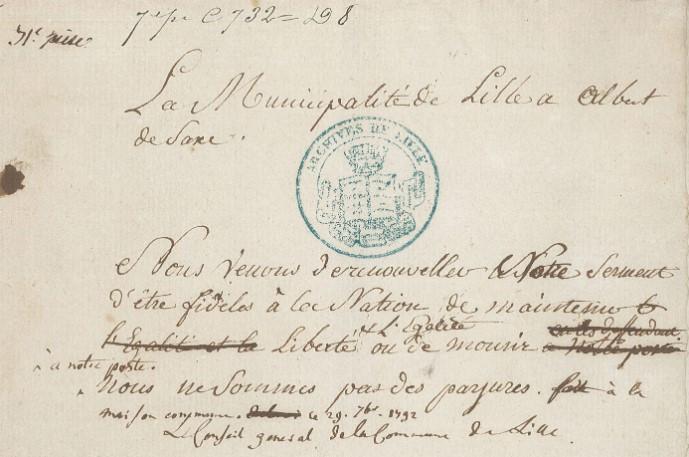 31e pièce
La Municipalité de Lille a Albert
de Saxe.
ARCHIVES DE LILLE
Nous venons de renouveller Notre Serment
d'être fidèles à la Nation de maintenir
et L'Egalité
l'Egalité et la Liberté ou de mourir a notre poste
à notre poste.
Nous ne Sommes pas des parjures. fait à la
maison commune. le 29. 7bre. 1792
Le Conseil general de la Commune de Lille.